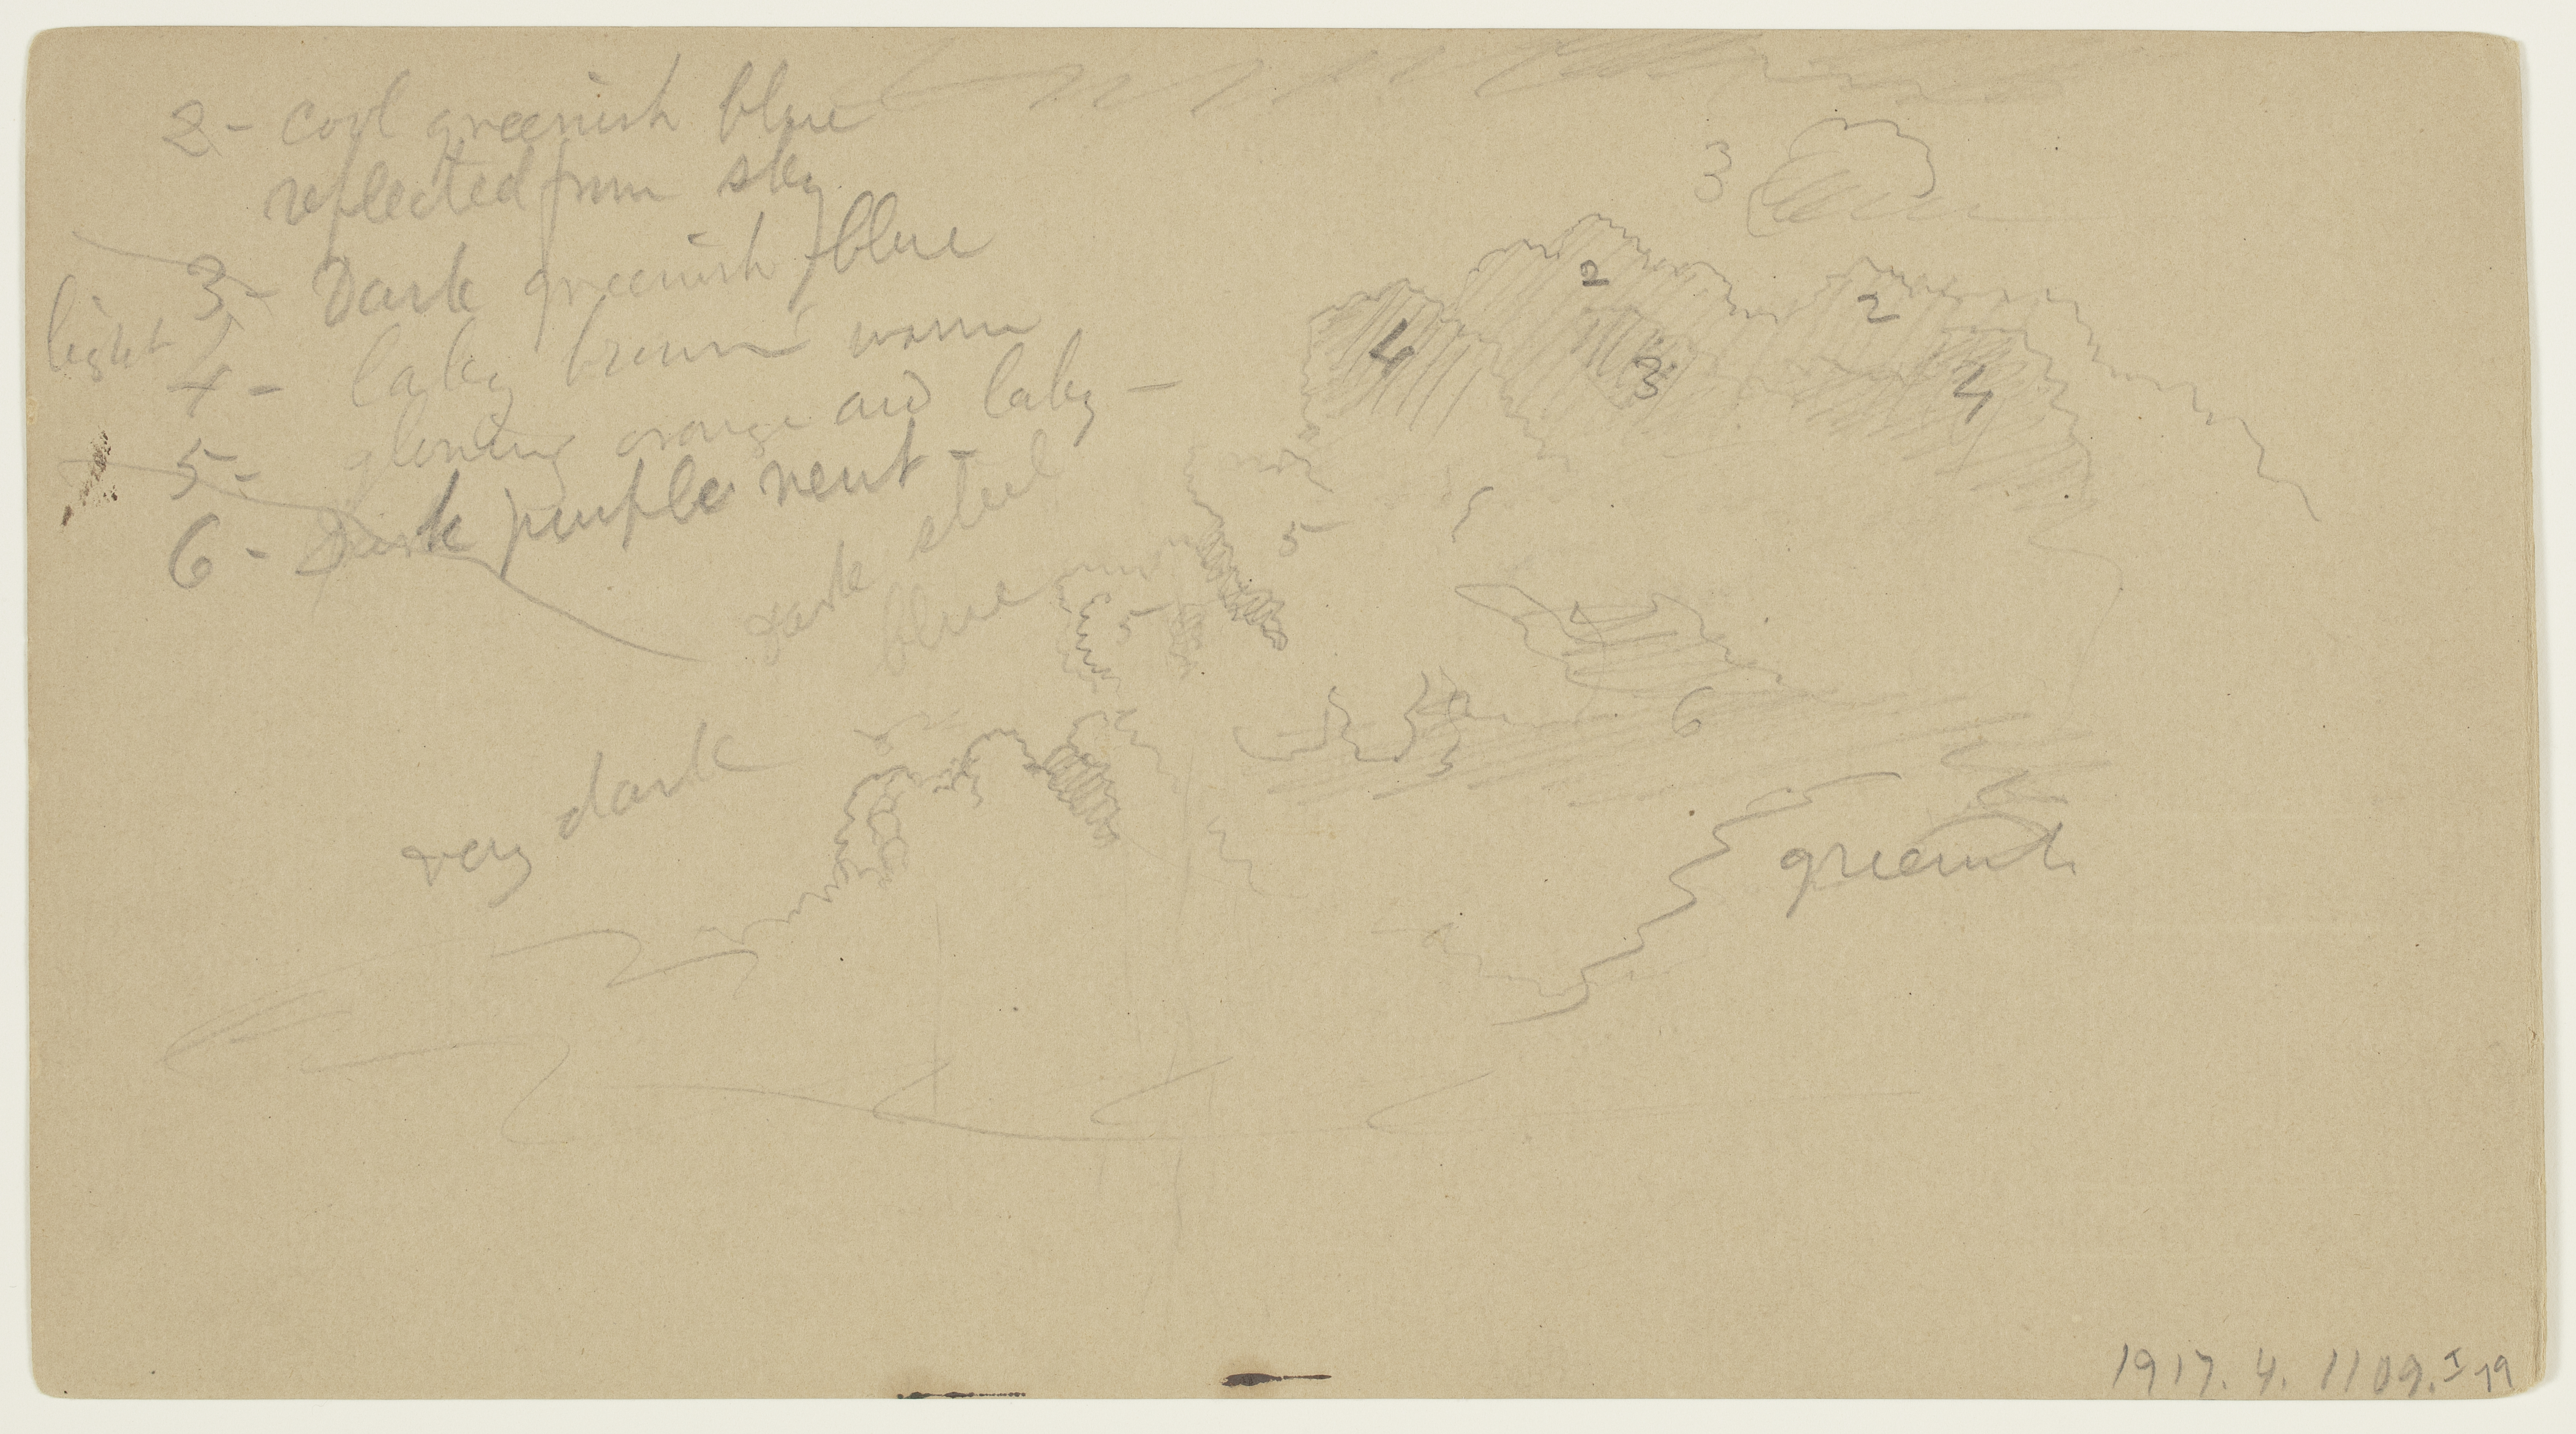 2 - cool greenish blue
reflected from sky
3 - Dark greenish blue
light
4 - laky brown warm
5 - glowing orange and laky -
6 - Dark purple neut -
dark steel
blue
very dark
greenish
3
2
2
4
3
4
5
5
5
6
1917.4.1109.I 19